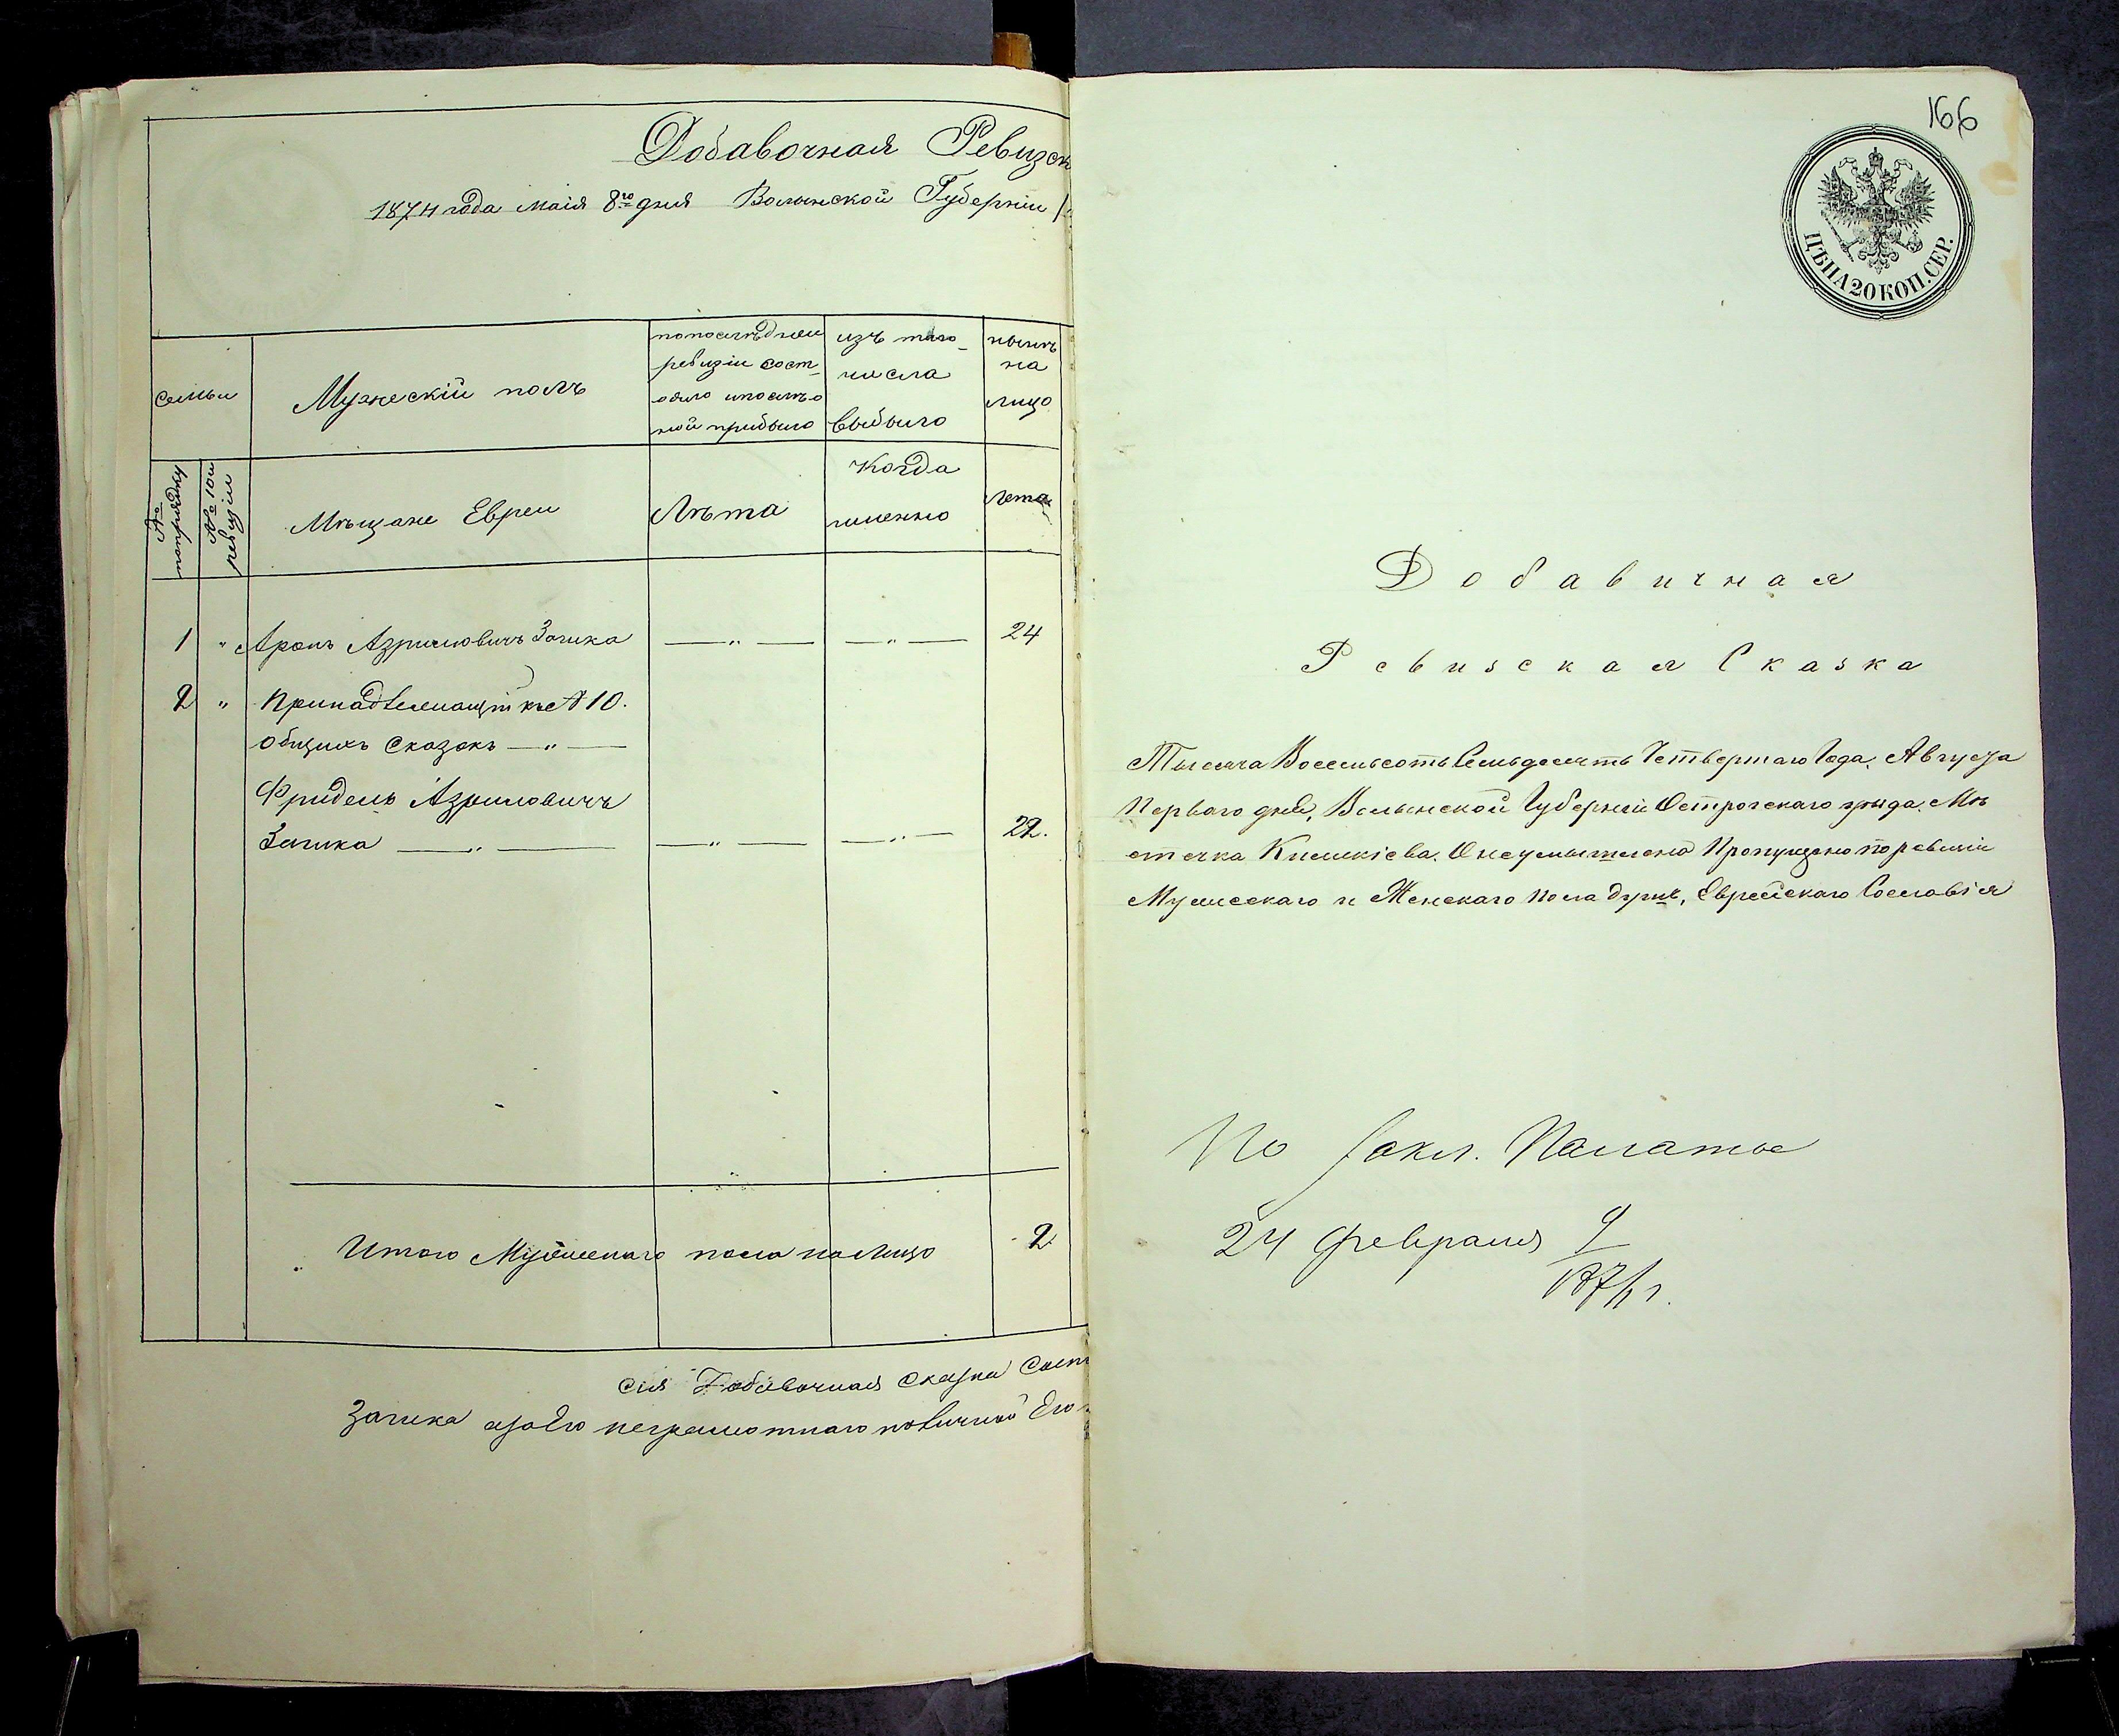 Добавочная Ревизск
1874 года маія 8го дня Волынской Губерніи
семьи
Мужескій полъ
попослѣдней
ревизіи сост
ояло ипослѣо
ной прибыло
изъ того
числа
выбыло
нынѣ
на
лицо
№ попорядку
№ 10й ревизіи
Мѣщане Евреи
Лѣта
Когда
именно
лета
1 " Аронъ Азриловичъ Зачика — " — — " — 24
2 " Принадлежащій къ № 10.
общихъ сказокъ — " —
Фридель Азриловичъ
Зачика — " — — " — — " — 22.
Итого Мужескаго пола на Лицо 2
Сія Добавочная сказка Сост
Зачика азаего неграмотнаго поличной Его
166
ЦѢНА 20 КОП. СЕР.
Добавичная
Ревизская Сказка
Тысяча Восемьсотъ Семьдесятъ Четвертаго Года, Августа
Перваго дня, Волынской Губерніи Острогскаго уѣзда. Мѣ
стечка Киликіева. О неумышлено Пропущено по ревизіи
Мужескаго и Женскаго пола душъ, Еврейскаго Сословія
По Палаты
24 февраля 9
187 г.